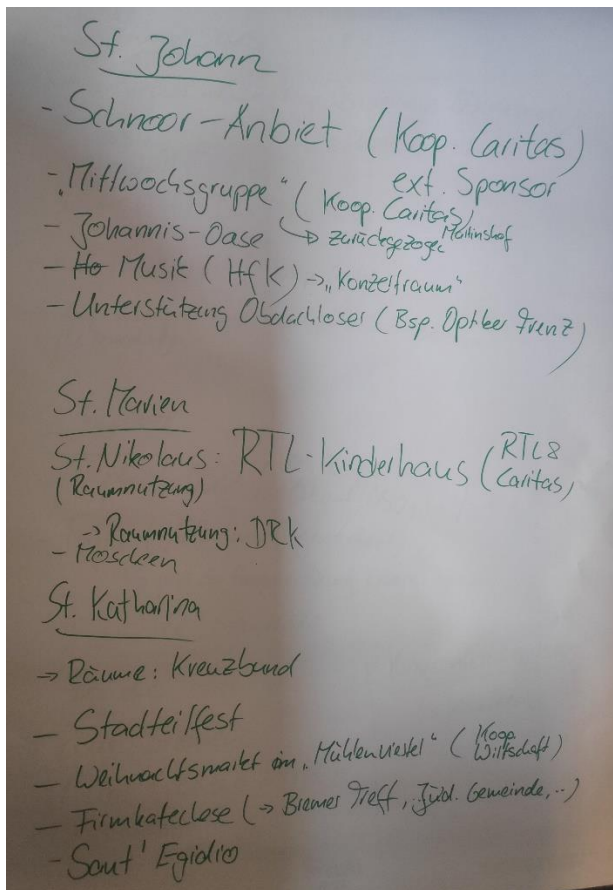 St. Johann
- Schnoor-Anbiet (Koop. Caritas)
ext. Sponsor
- „Mittwochsgruppe" (Koop. Caritas)
- Johannis-Oase → zurückgezogen Martinshof
- Musik (HfK) → „Konzertraum"
- Unterstützung Obdachloser (Bsp. Optiker Frenz)
St. Marien
St. Nikolaus: RTL-Kinderhaus (RTL &
(Raumnutzung) Caritas)
→ Raumnutzung: DRK
- Moscheen
St. Katharina
→ Räume: Kreuzbund
- Stadtteilfest
- Weihnachtsmarkt im „Mühlenviertel" (Koop. Wirtschaft)
- Firmkatechese (→ Bremer Treff, Jüd. Gemeinde, ..)
- Sant' Egidio